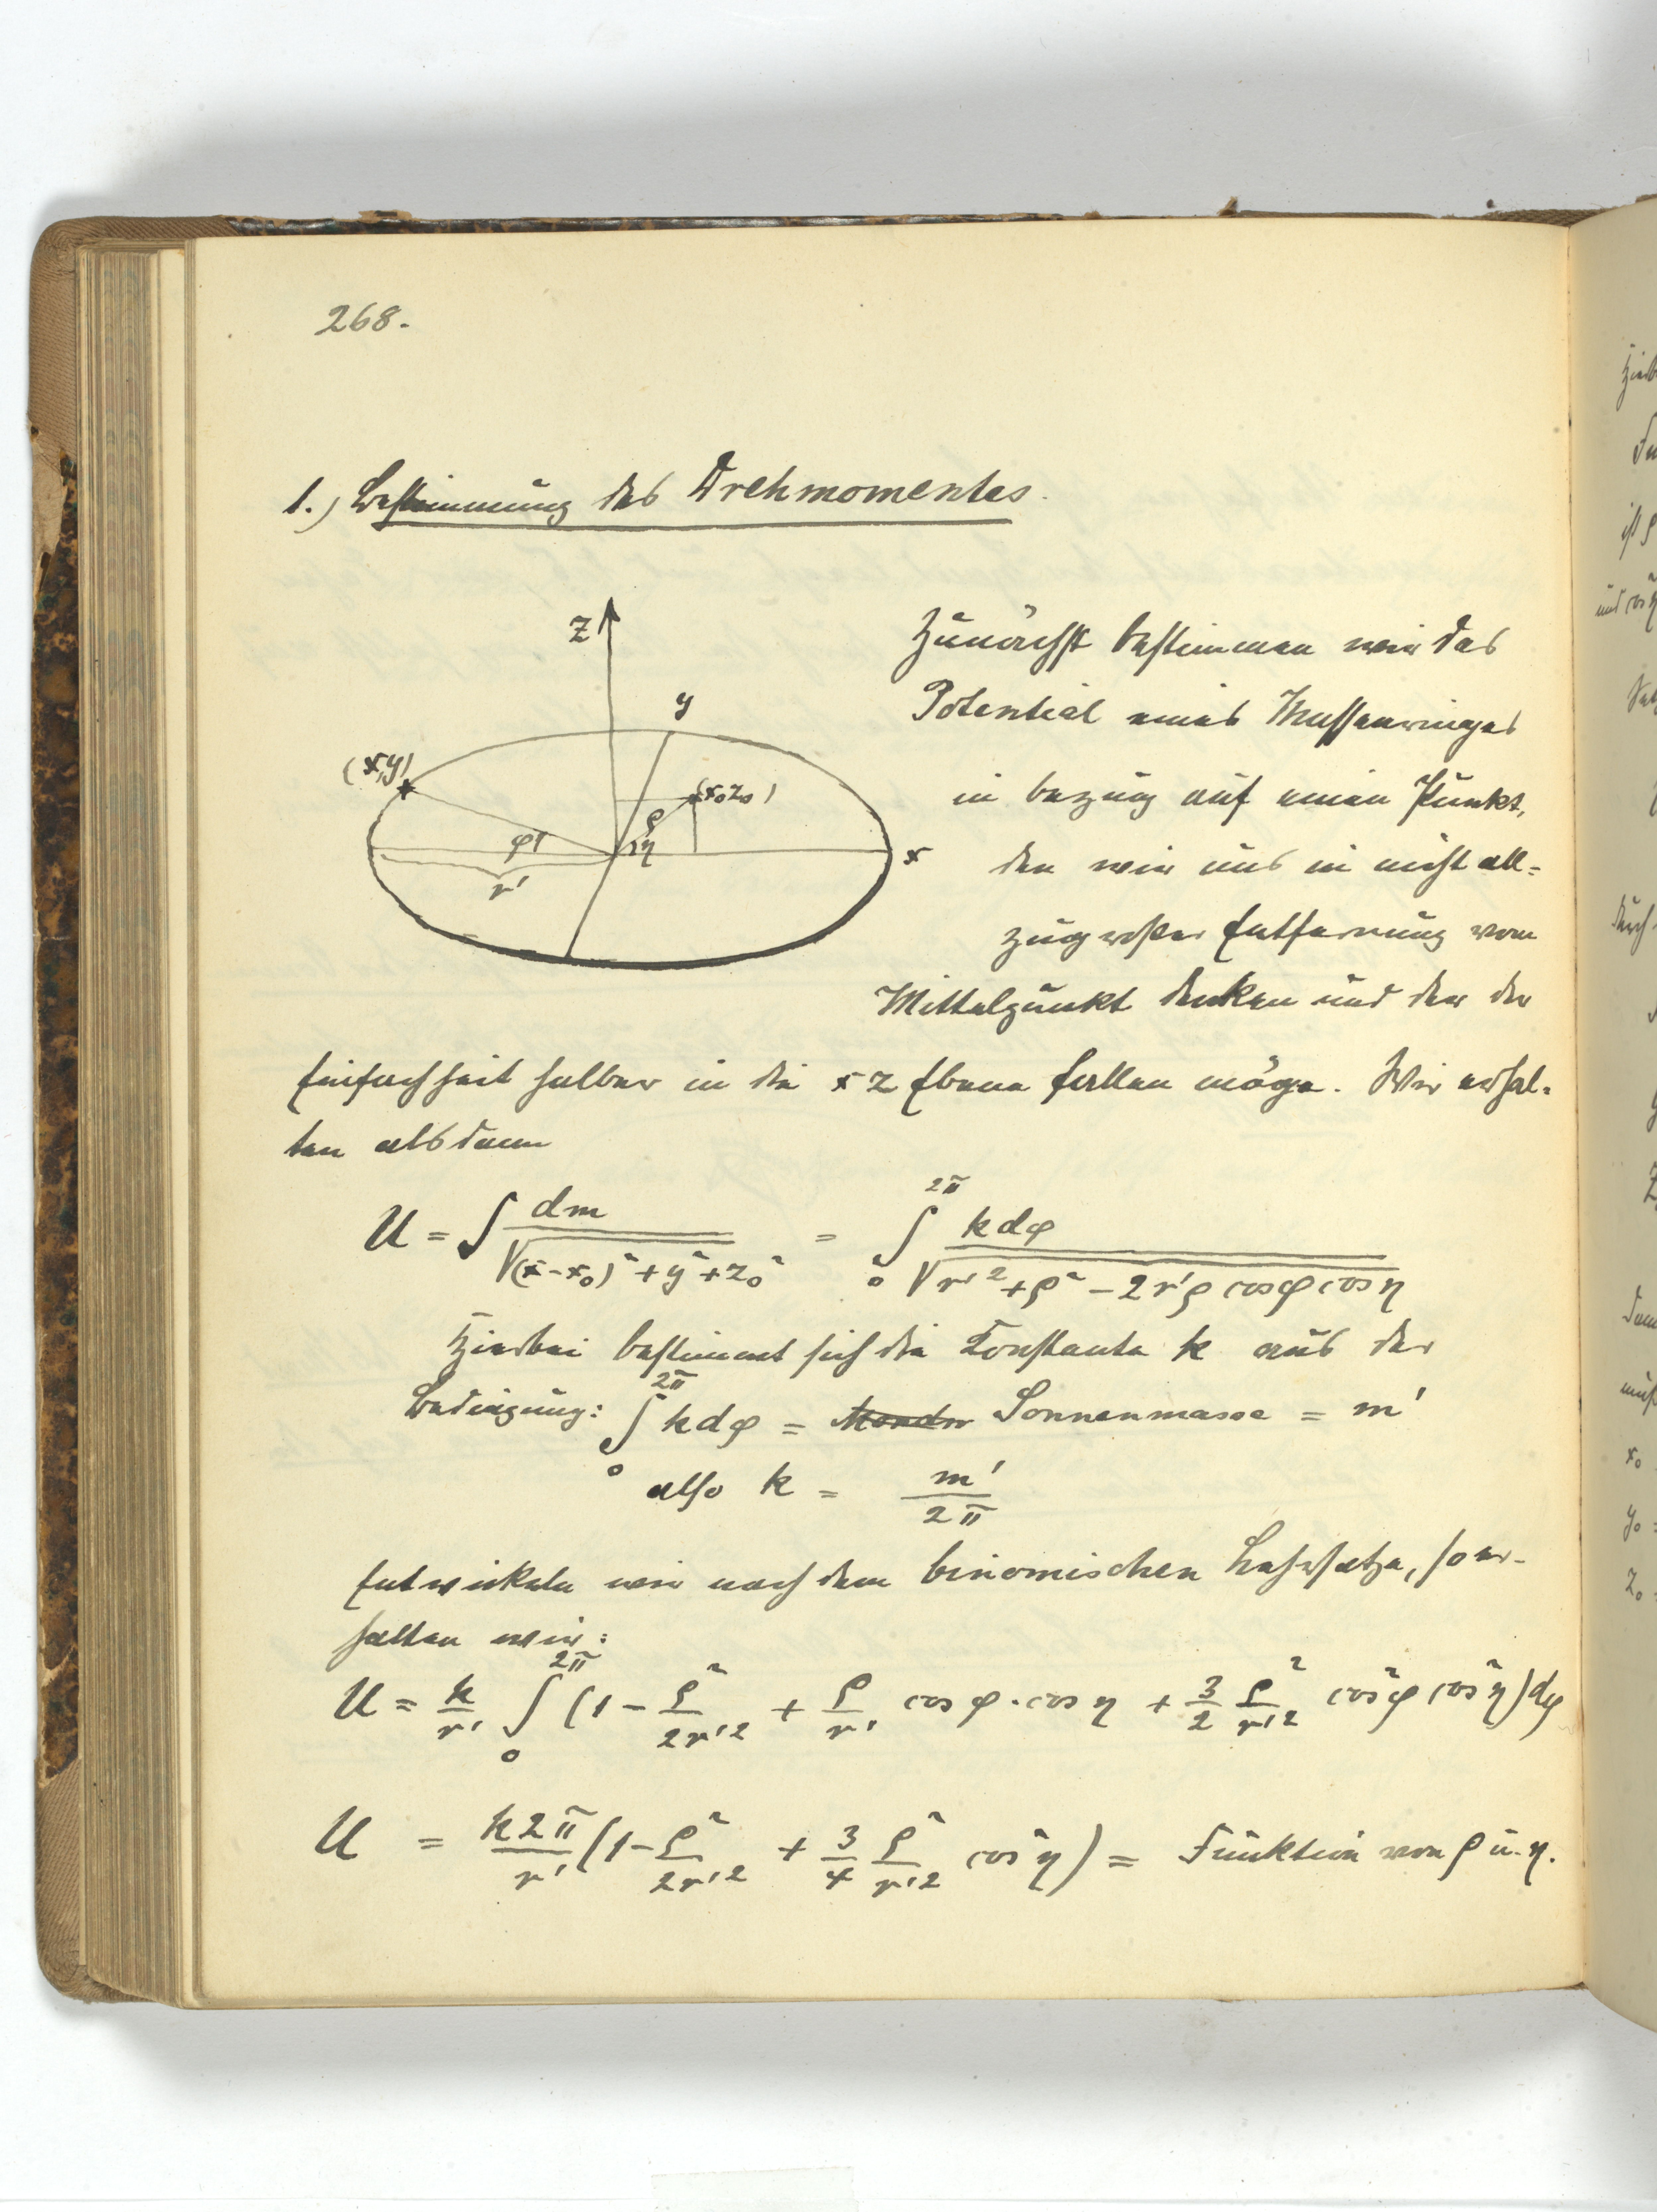 268.
1.) Bestimmung des Drehmomentes.
z
y
(x,y)
(x₀z₀)
ρ
φ
η
x
r'
Zunächst bestimmen wir das
Potential eines Massenringes
in bezug auf einen Punkt,
den wir uns in nicht all=
zugroßer Entfernung vom
Mittelpunkt denken und der der
Einfachheit halber in die xz Ebene fallen möge. Wir erhal=
ten alsdann
U = ∫ dm / √((x-x₀)² + y² + z₀²) = ∫₀^2π k dφ / √(r'² + ρ² - 2r'ρ cosφ cosη)
Hierbei bestimmt sich die Konstante k aus der
Bedingung: ∫₀^2π k dφ = Sonnenmasse = m'
also k = m' / 2π
Entwickeln wir nach dem binomischen Lehrsatze, so er-
halten wir:
U = k/r' ∫₀^2π (1 - ρ²/2r'² + ρ/r' cosφ · cosη + 3/2 ρ²/r'² cos²φ cos²η) dφ
U = k2π/r' (1 - ρ²/2r'² + 3/4 ρ²/r'² cos²η) = Funktion von ρ u. η.